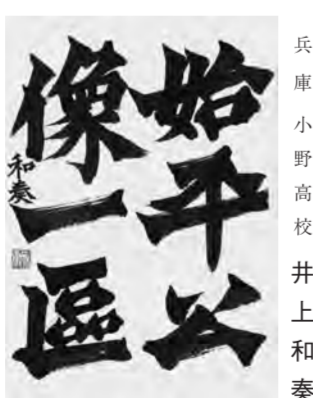 兵庫小野高校
井上和奏
始平公
像一區
和奏